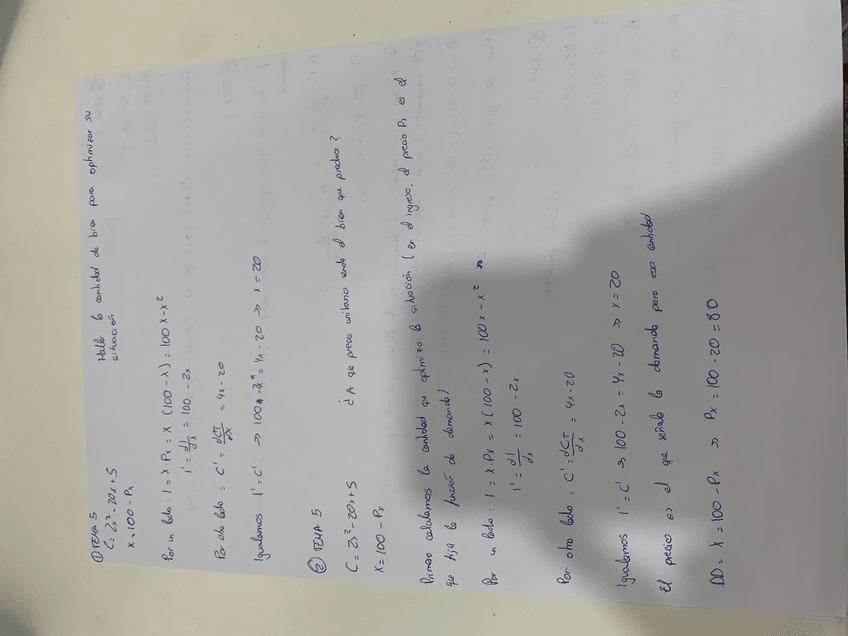 ① TEMA 5
C = 2x² - 20x + 5 Halle la cantidad de bien para optimizar su
x = 100 - Px situación
Por un lado: I = x · Px = x (100 - x) = 100x - x²
I' = dI/dx = 100 - 2x
Por otro lado: C' = dCT/dx = 4x - 20
Igualamos I' = C' => 100 - 2x = 4x - 20 => x = 20
② TEMA 5
C = 2x² - 20x + 5 ¿A que precio unitario vende el bien que produce?
x = 100 - Px
Primero calculamos la cantidad que optimiza la situación (en el ingreso, el precio Px es el
que fija la función de demanda).
Por un lado: I = x · Px = x (100 - x) = 100x - x² =>
I' = dI/dx = 100 - 2x
Por otro lado: C' = dCT/dx = 4x - 20
Igualamos I' = C' => 100 - 2x = 4x - 20 => x = 20
El precio es el que señala la demanda para esa cantidad
DD = x = 100 - Px => Px = 100 - 20 = 80